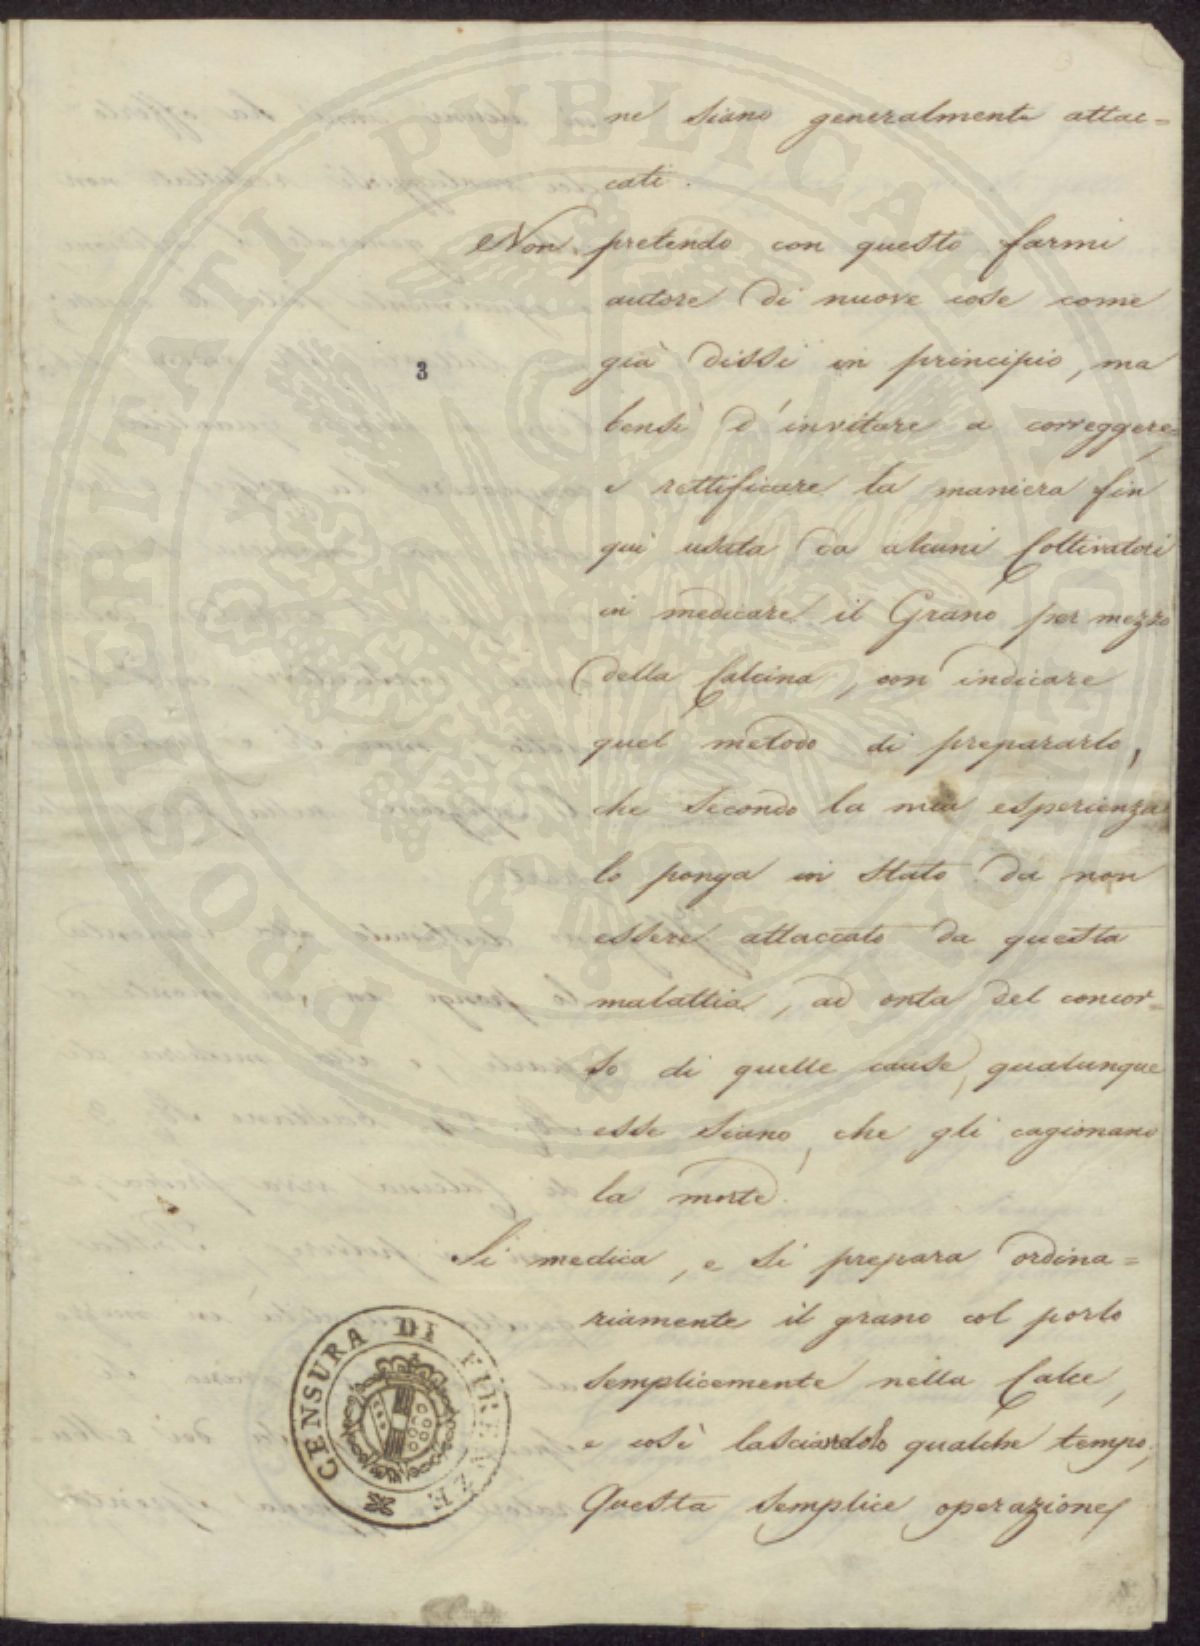 ne siano generalmente attac=
cati.
Non pretendo con questo farmi
autore di nuove cose come
già dissi in principio, ma
3
bensì d'invitare a correggere,
e rettificare la maniera fin
quì usata da alcuni Coltivatori
in medicare il Grano per mezzo
della Calcina, con indicare
quel metodo di prepararlo,
che secondo la mia esperienza
lo ponga in stato da non
essere attaccato da questa
malattia, ad onta del concor=
so di quelle cause, qualunque
esse siano, che gli cagionano
la morte.
Si medica, e si prepara ordina=
riamente il grano col porlo
semplicemente nella Calce,
e così lasciandolo qualche tempo,
Questa semplice operazione
CENSURA DI FIRENZE
PROSPERITATI PVBLICAE